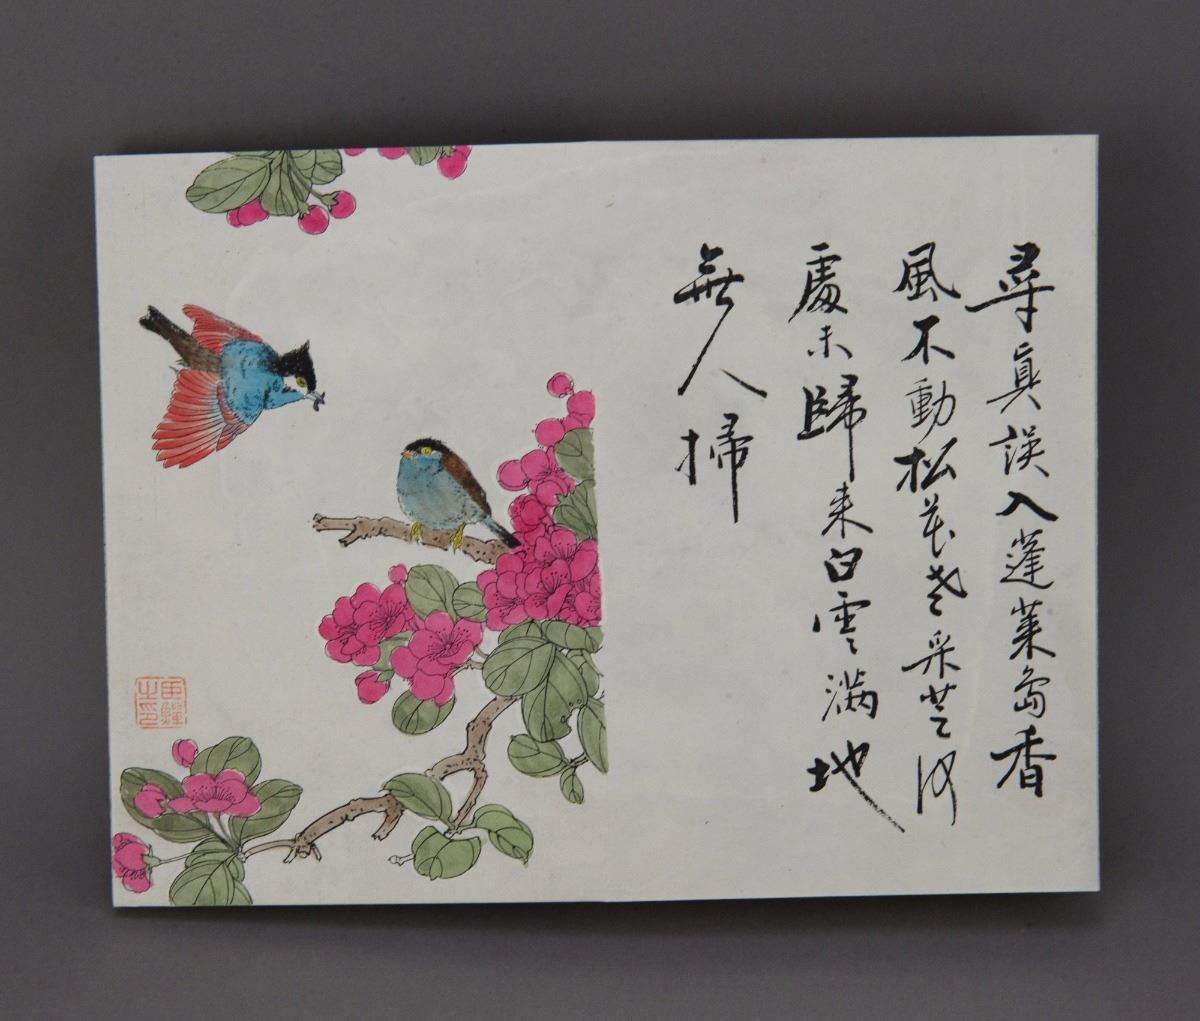 尋真誤入蓬萊島香
風不動松花老采芝何
處未歸来白雲滿地
無人掃